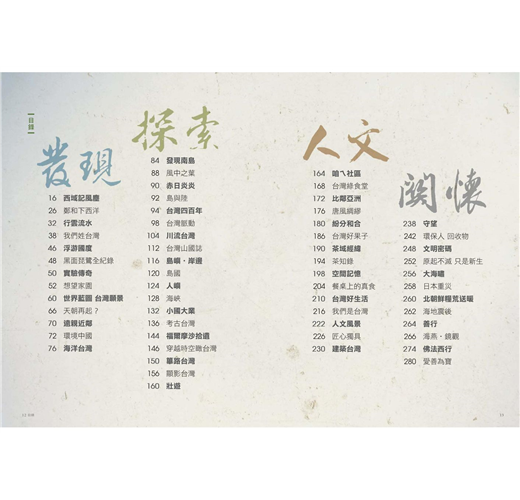 【目錄】
發現
16 西域記風塵
26 鄭和下西洋
32 行雲流水
38 我們姓台灣
46 浮游國度
48 黑面琵鷺全紀錄
50 實驗傳奇
52 想望家園
60 世界藍圖 台灣願景
66 天朝再起？
70 遠親近鄰
72 環境中國
76 海洋台灣
探索
84 發現南島
88 風中之葉
90 赤日炎炎
92 島與陸
94 台灣四百年
98 台灣脈動
104 川流台灣
112 台灣山國誌
116 島嶼・岸邊
120 島國
124 人嶼
128 海峽
132 小國大業
136 考古台灣
144 福爾摩沙拾遺
146 穿越時空瞰台灣
150 篳路台灣
156 顯影台灣
160 壯遊
人文
164 咱ㄟ社區
168 台灣綠食堂
172 比鄰亞洲
176 唐風綢繆
180 紛分和合
186 台灣好果子
190 茶域經緯
194 茶知錄
198 空間記憶
204 餐桌上的真食
210 台灣好生活
216 我們是台灣
222 人文風景
226 匠心獨具
230 建築台灣
關懷
238 守望
242 環保人 回收物
248 文明密碼
252 原起不滅 只是新生
256 大海嘯
258 日本重災
260 北朝鮮糧荒送暖
262 海地震後
264 善行
266 海燕・鏡觀
274 佛法西行
280 愛善為寶